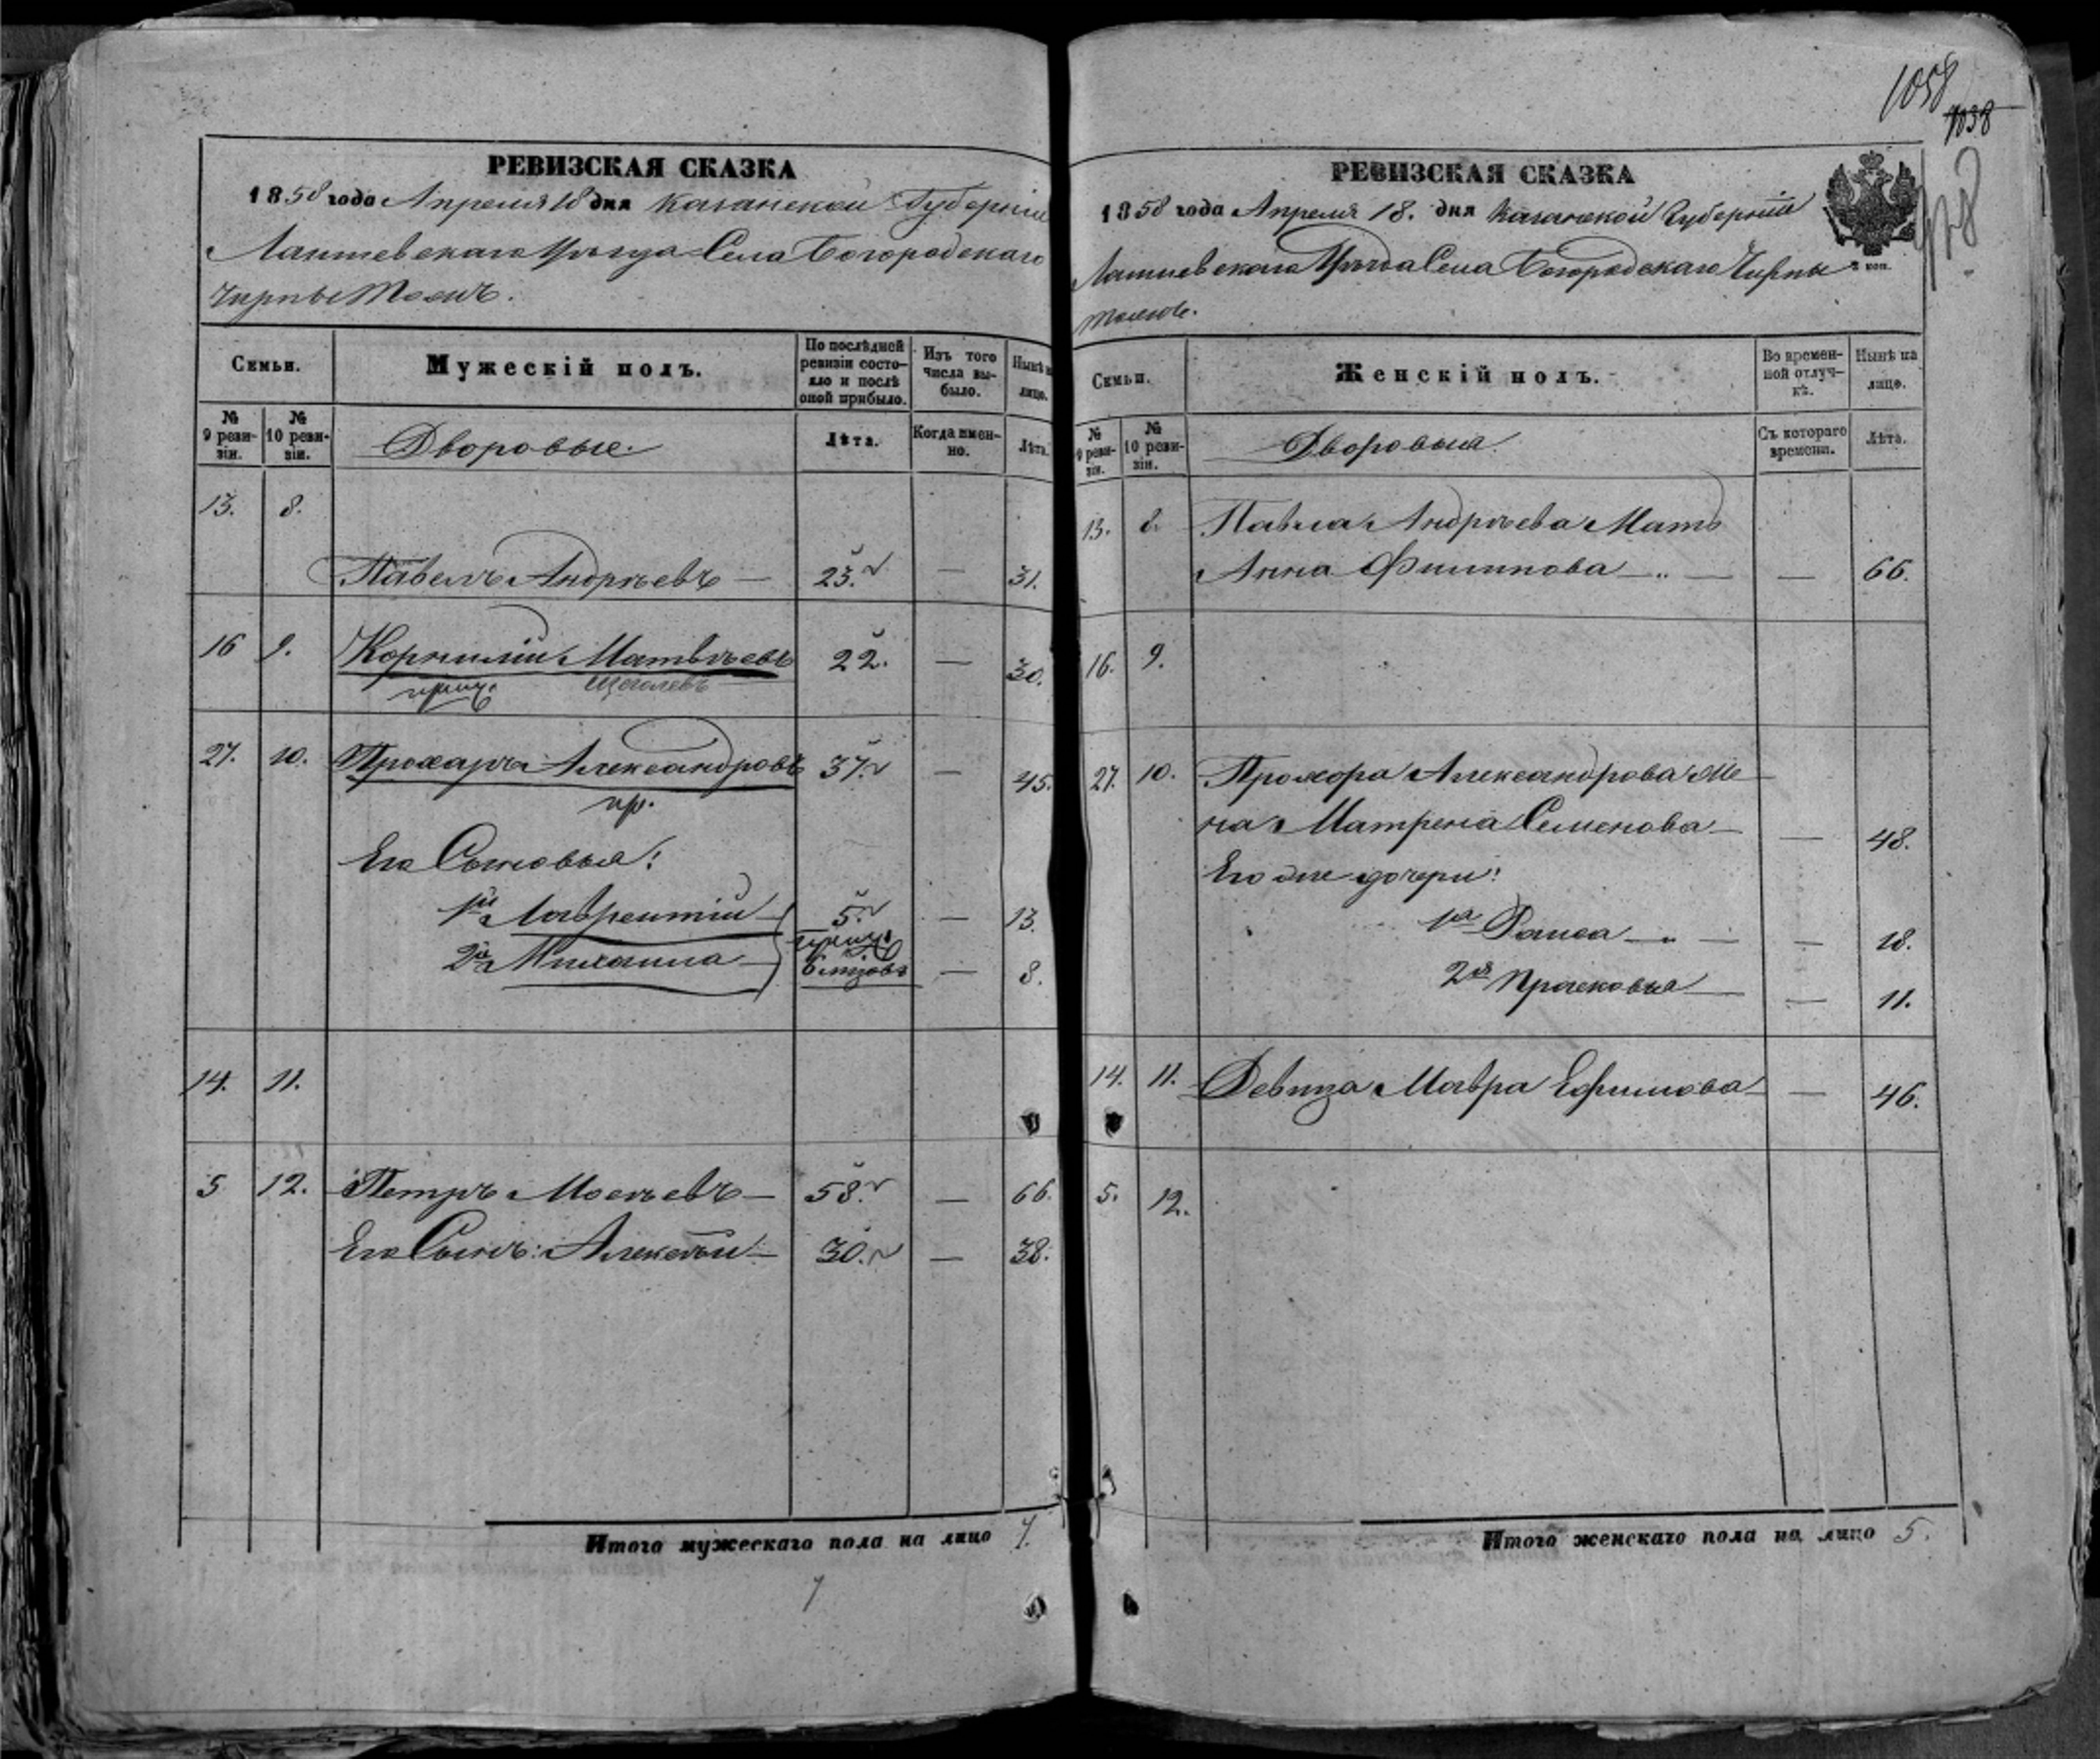 1058
1038
928
РЕВИЗСКАЯ СКАЗКА
1858 года Апреля 18 дня Казанской Губерніи
Лаишевскаго Уѣзда Села Богородскаго
Чирпы Тожъ.
Семьи.
Мужескій полъ.
По послѣдней ревизіи состояло и послѣ оной прибыло.
Изъ того числа выбыло.
Нынѣ на лицо.
№ 9 ревизіи.
№ 10 ревизіи.
Дворовые.
Лѣта.
Когда именно.
Лѣта.
13. 8.
Павелъ Андрѣевъ — 23. — 31.
16 9. Корнилій Матвѣевъ 22. — 30.
Щеголевъ
27. 10. Прохаръ Александровъ 37. — 45.
пр.
Его Сыновья:
1й Лаврентій 5. — 13.
2й Михаила — 8.
14. 11.
5 12. Петръ Мосѣевъ — 58. — 66.
Его Сынъ: Алексѣй — 30. — 38.
Итого мужескаго пола на лицо 7.
7
РЕВИЗСКАЯ СКАЗКА
1858 года Апреля 18. дня Казанской Губерніи
Лаишевскаго Уѣзда Села Богородскаго Чирпы
тожъ.
Семьи.
Женскій полъ.
Во временной отлучкѣ.
Нынѣ на лицо.
№ 9 ревизіи.
№ 10 ревизіи.
Дворовыя.
Съ котораго времени.
Лѣта.
13. 8. Павла Андрѣева Мать
Анна Филипова — " — — 66.
16. 9.
27. 10. Прохора Александрова Же
на Матрена Семенова — — 48.
Его же дочери:
1я Раиса — " — — 18.
2я Прасковья — — 11.
14. 11. Девица Мавра Ефимова — — 46.
5. 12.
Итого женскаго пола на лицо 5.